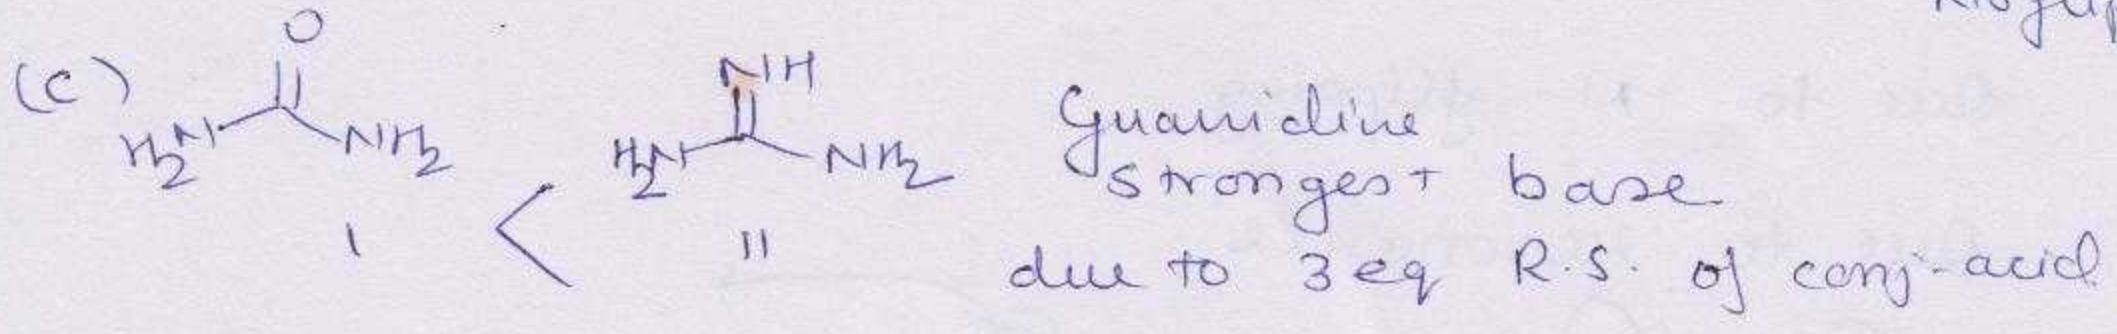 (c) O
H2N NH2
I
<
NH
H2N NH2
II
Guanidine
strongest base
due to 3 eq R.S. of conj-acid